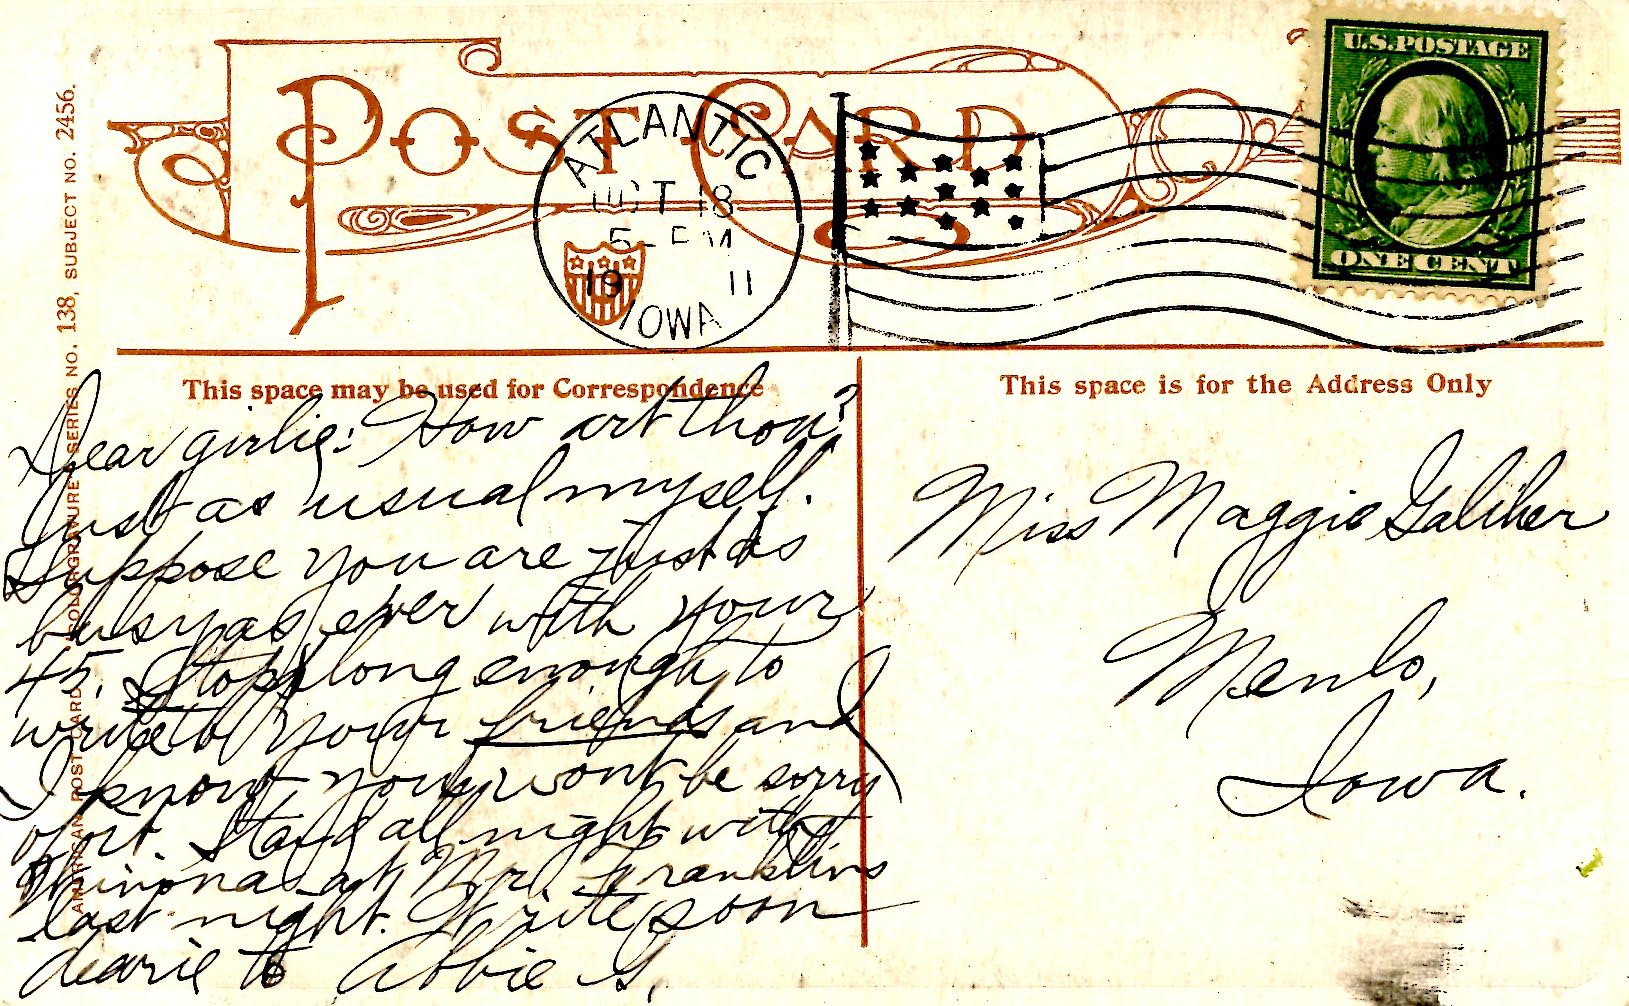 POST CARD
ATLANTIC
OCT 18
5- PM
19 11
IOWA
U.S. POSTAGE
ONE CENT
AMERICAN POST CARD COLORGRAVURE SERIES NO. 138, SUBJECT NO. 2456.
This space may be used for Correspondence
This space is for the Address Only
Dear girlie: How art thou?
Just as usual myself.
Suppose you are just as
busy as ever with your
45. Stop long enough to
write to your friends and
I know you wont be sorry
of it. Stayed all night with
Winona at Mr. Franklins
last night. Write soon
dearie to Abbie S.
Miss Maggie Galiher
Menlo,
Iowa.